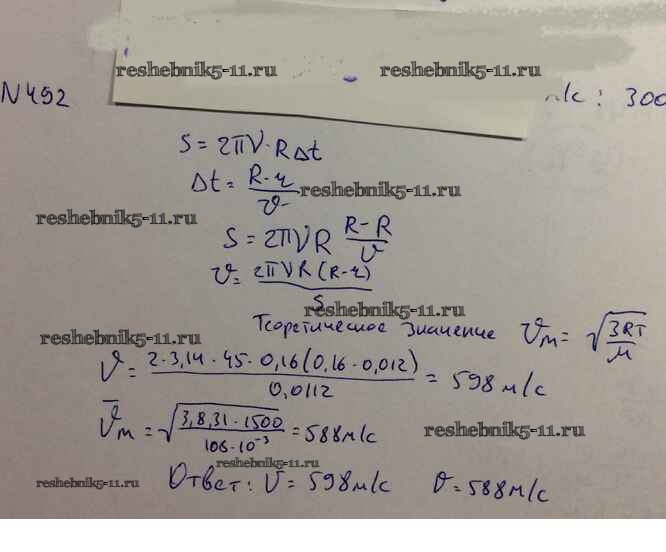 reshebnik5-11.ru reshebnik5-11.ru
N492 м/с: 300
S = 2πν·RΔt
Δt = (R-r)/v reshebnik5-11.ru
reshebnik5-11.ru
S = 2πνR (R-R)/v
v = 2πνR(R-r)/S
reshebnik5-11.ru
Теоретическое значение vм = √(3RT/м)
reshebnik5-11.ru
v = 2·3,14·45·0,16(0,16·0,012)/0,0112 = 598 м/с
v̄м = √(3,8,31·1500/108·10⁻³) = 588 м/с reshebnik5-11.ru
reshebnik5-11.ru
reshebnik5-11.ru Ответ: v = 598 м/с v = 588 м/с
reshebnik5-11.ru